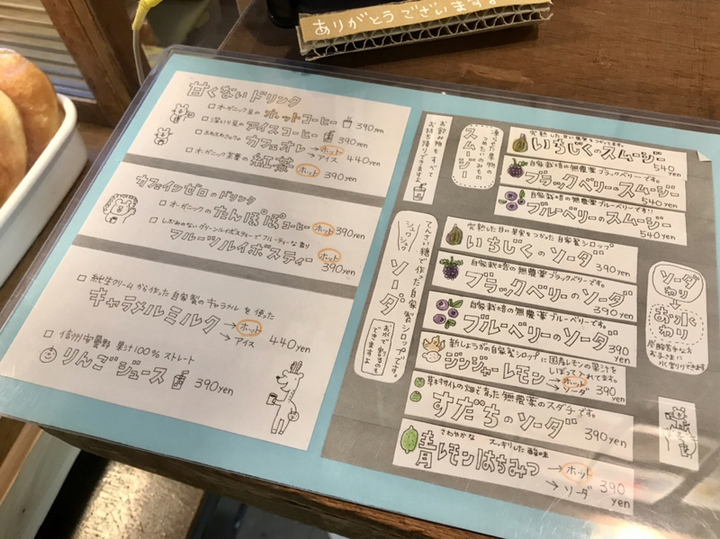 ありがとうございます。
甘くないドリンク
□オーガニック豆の ホットコーヒー 390yen
□深いり豆の アイスコーヒー 390yen
カフェオレ →ホット →アイス 440yen
□オーガニック茶葉の 紅茶 ホット 390yen
カフェインゼロのドリンク
□オーガニックの たんぽぽコーヒー ホット 390yen
フルーツルイボスティー ホット 390yen
□純生クリームから作った自家製のキャラメルを使った
キャラメルミルク →ホット →アイス 440yen
□信州安曇野 果汁100% ストレート
りんごジュース 390yen
お飲み物をすべてお持ち帰りできます
凍った果物の
スムージー
完熟した苺を
いちじくのスムージー 540yen
自家栽培の無農薬ブラックベリーです。
ブラックベリーのスムージー 540yen
自家栽培の無農薬ブルーベリーです!!
ブルーベリーのスムージー 540yen
シュワシュワ ソーダ
てんさい糖で作った自家製シロップです。
お水で割るのもできますよ
自家製シロップ
いちじくのソーダ 390yen
自家栽培の無農薬ブラックベリーです。
ブラックベリーのソーダ 390yen
自家栽培の無農薬ブルーベリーです。
ブルーベリーのソーダ 390yen
新しょうがの自家製シロップに国産レモンの果汁をしぼって入れてます。
ジンジャーレモン →ホット →ソーダ 390yen
無農薬のスダチです。
すだちのソーダ 390yen
さわやかな スッキリした酸味
青レモンはちみつ →ホット →ソーダ 390yen
ソーダわり→お水わり
炭酸苦手な方
お子さまに